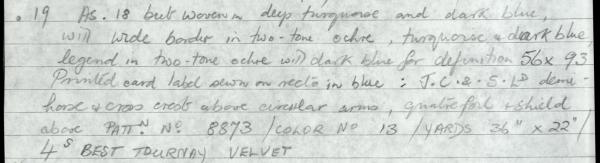 . 19 As. 18 but woven in deep turquoise and dark blue,
with wide border in two-tone ochre, turquoise & dark blue,
legend in two-tone ochre with dark blue for definition 56 x 93
Printed card label sewn on recto in blue : J.C.&.S.LD demi-
horse & cross crests above circular arms, quatrefoil & shield
above PATTN. No. 8873 / COLOR No 13 / YARDS 36" x 22" /
4S BEST TOURNAY VELVET